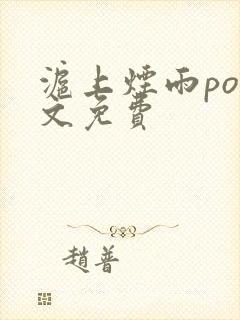 滬上煙雨po
文免費
趙普